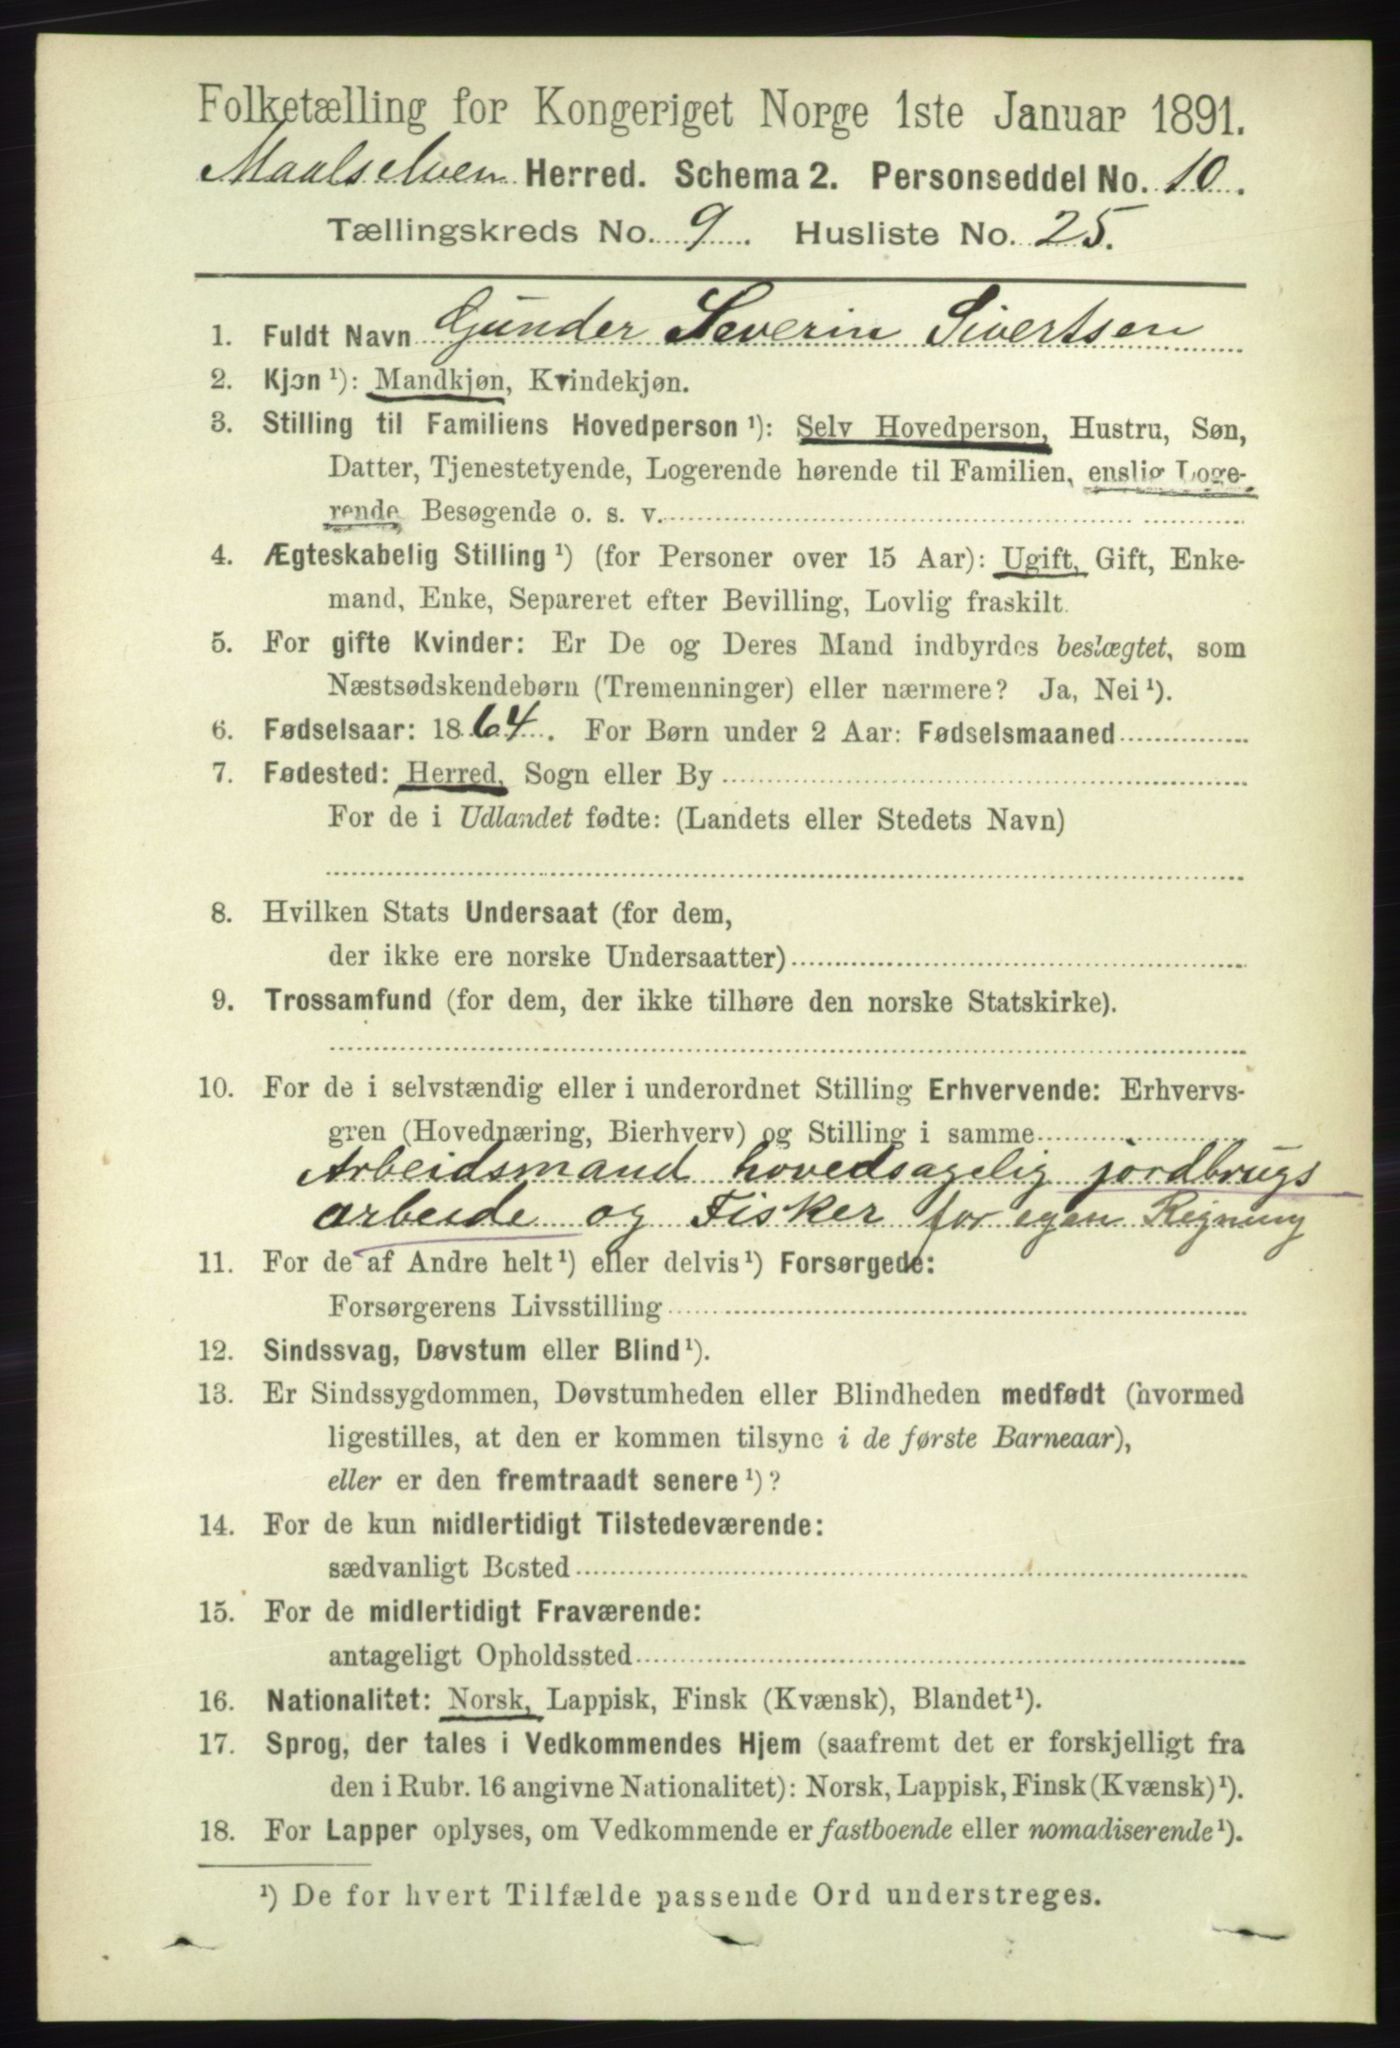 Folketælling for Kongeriget Norge 1ste Januar 1891.
Maalselven Herred. Schema 2. Personseddel No. 10.
Tællingskreds No. 9. Husliste No. 25.
1. Fuldt Navn Gunder Severin Sivertsen
2. Kjøn ¹): Mandkjøn, Kvindekjøn.
3. Stilling til Familiens Hovedperson ¹): Selv Hovedperson, Hustru, Søn,
Datter, Tjenestetyende, Logerende hørende til Familien, enslig Loge-
rende, Besøgende o. s. v.
4. Ægteskabelig Stilling ¹) (for Personer over 15 Aar): Ugift, Gift, Enke-
mand, Enke, Separeret efter Bevilling, Lovlig fraskilt.
5. For gifte Kvinder: Er De og Deres Mand indbyrdes beslægtet, som
Næstsødskendebørn (Tremenninger) eller nærmere? Ja, Nei ¹).
6. Fødselsaar: 1864. For Børn under 2 Aar: Fødselsmaaned
7. Fødested: Herred, Sogn eller By
For de i Udlandet fødte: (Landets eller Stedets Navn)
8. Hvilken Stats Undersaat (for dem,
der ikke ere norske Undersaatter)
9. Trossamfund (for dem, der ikke tilhøre den norske Statskirke).
10. For de i selvstændig eller i underordnet Stilling Erhvervende: Erhvervs-
gren (Hovednæring, Bierhverv) og Stilling i samme
Arbeidsmand hovedsagelig jordbrugs
arbeide og Fisker for egen Regning
11. For de af Andre helt ¹) eller delvis ¹) Forsørgede:
Forsørgerens Livsstilling
12. Sindssvag, Døvstum eller Blind ¹).
13. Er Sindssygdommen, Døvstumheden eller Blindheden medfødt (hvormed
ligestilles, at den er kommen tilsyne i de første Barneaar),
eller er den fremtraadt senere ¹)?
14. For de kun midlertidigt Tilstedeværende:
sædvanligt Bosted
15. For de midlertidigt Fraværende:
antageligt Opholdssted
16. Nationalitet: Norsk, Lappisk, Finsk (Kvænsk), Blandet ¹).
17. Sprog, der tales i Vedkommendes Hjem (saafremt det er forskjelligt fra
den i Rubr. 16 angivne Nationalitet): Norsk, Lappisk, Finsk (Kvænsk) ¹).
18. For Lapper oplyses, om Vedkommende er fastboende eller nomadiserende ¹).
¹) De for hvert Tilfælde passende Ord understreges.